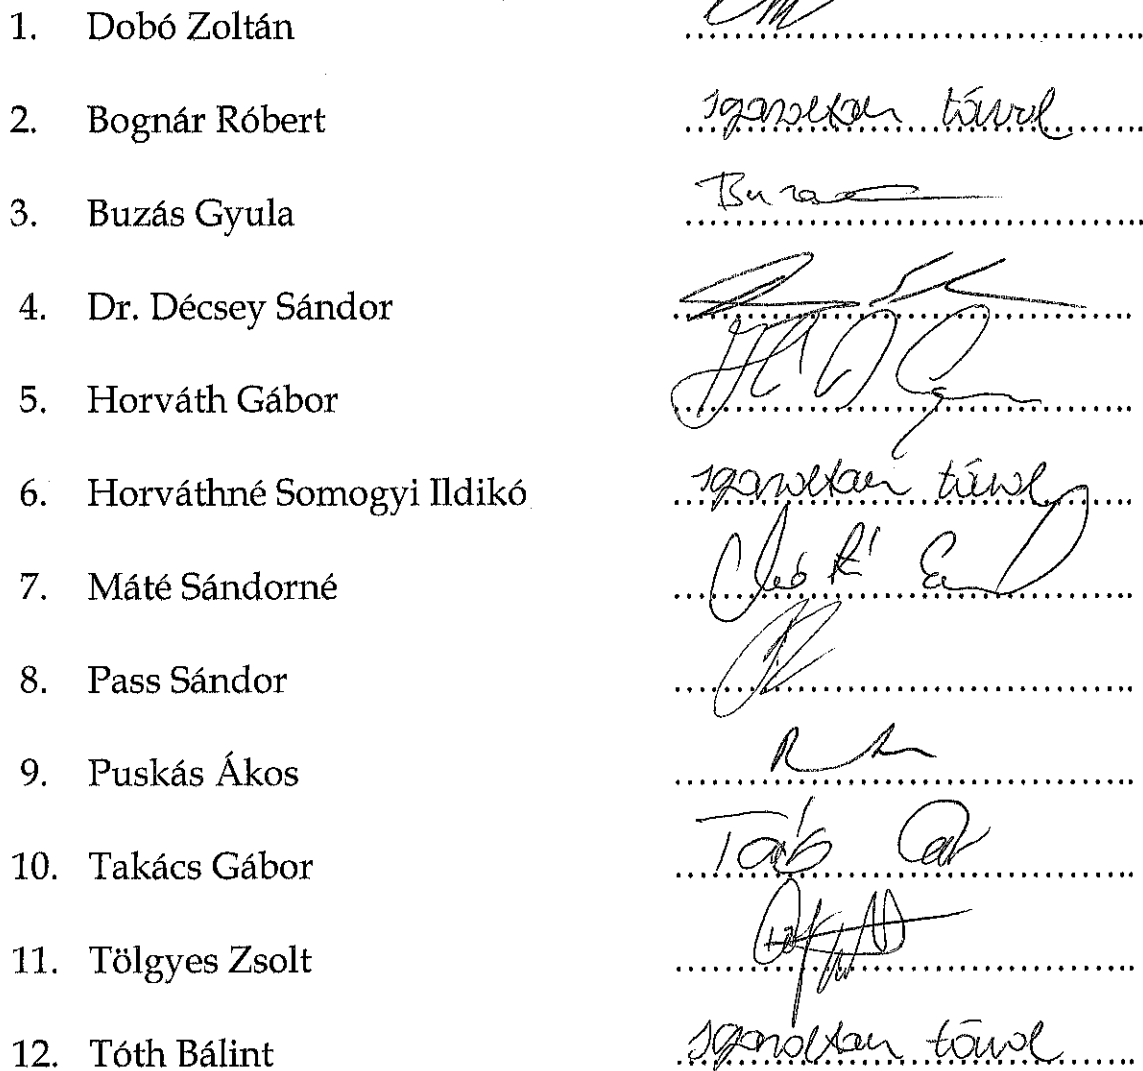 1. Dobó Zoltán ........................................
2. Bognár Róbert igazoltan távol
3. Buzás Gyula Buzás
4. Dr. Décsey Sándor ........................................
5. Horváth Gábor ........................................
6. Horváthné Somogyi Ildikó igazoltan távol
7. Máté Sándorné ........................................
8. Pass Sándor ........................................
9. Puskás Ákos ........................................
10. Takács Gábor ........................................
11. Tölgyes Zsolt ........................................
12. Tóth Bálint igazoltan távol